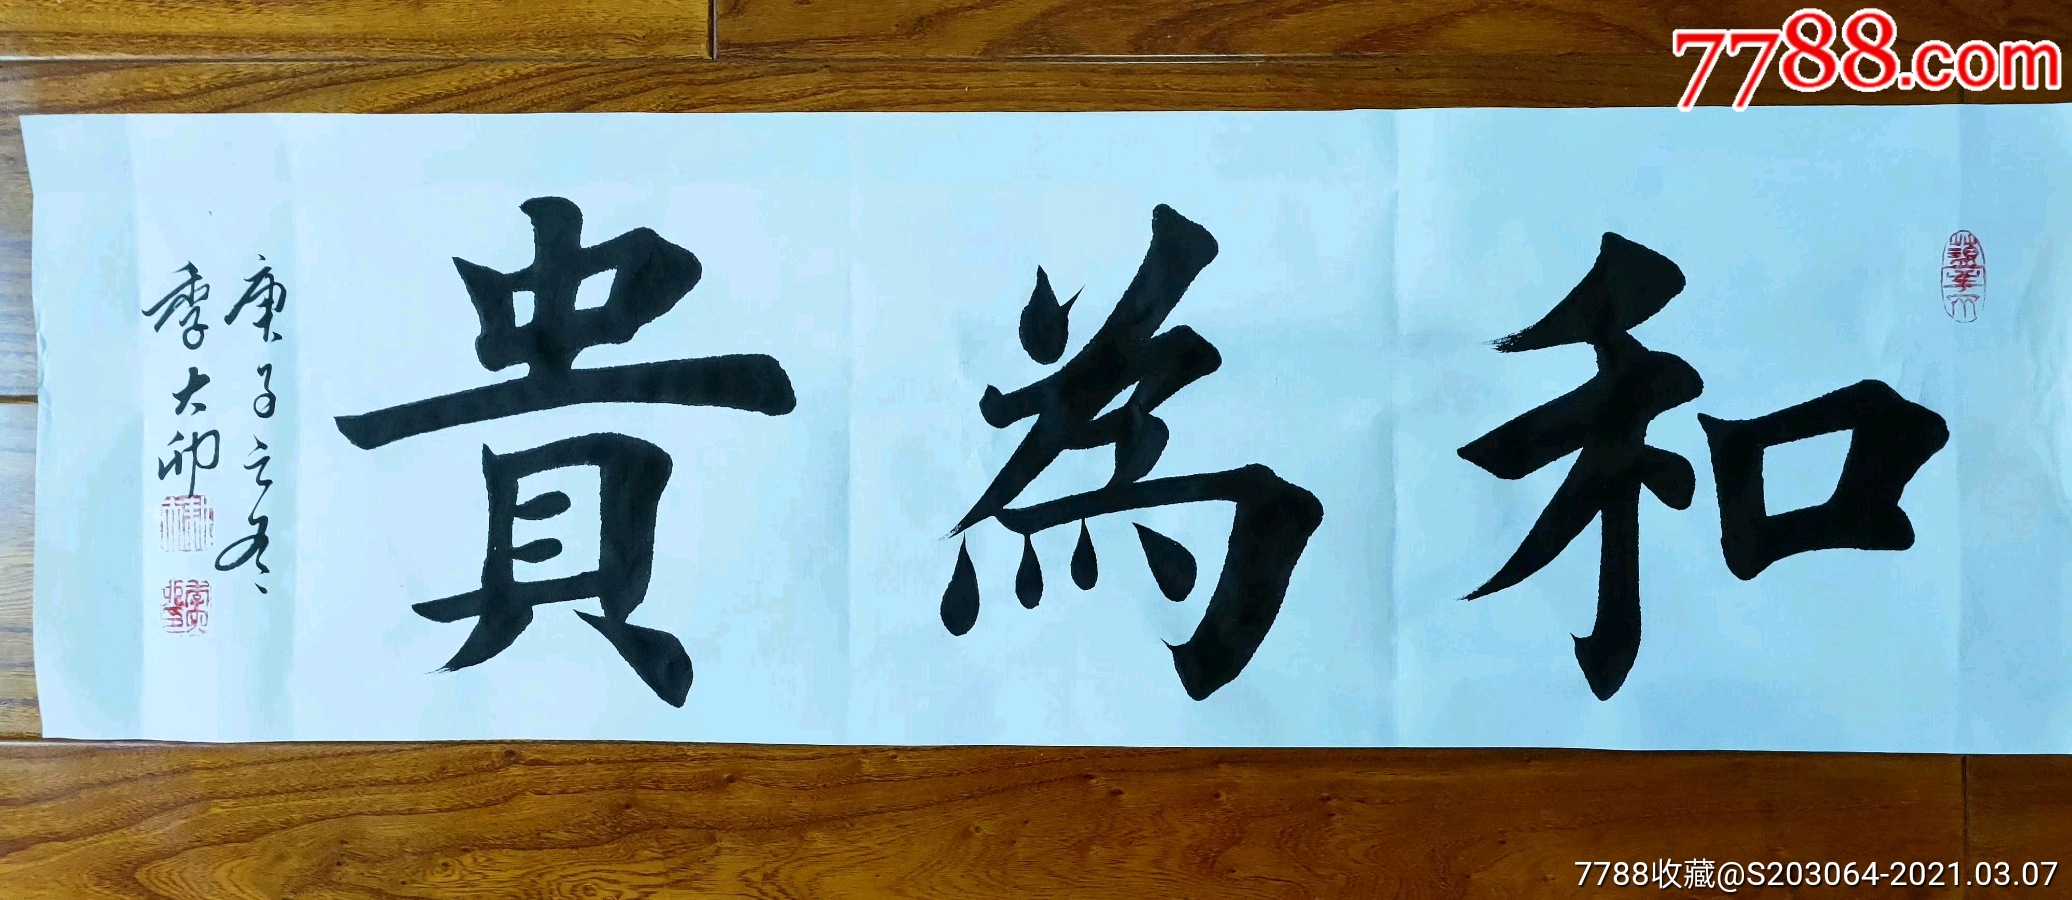 7788.com
和為貴
庚子之冬
季大卯
7788收藏@S203064-2021.03.07